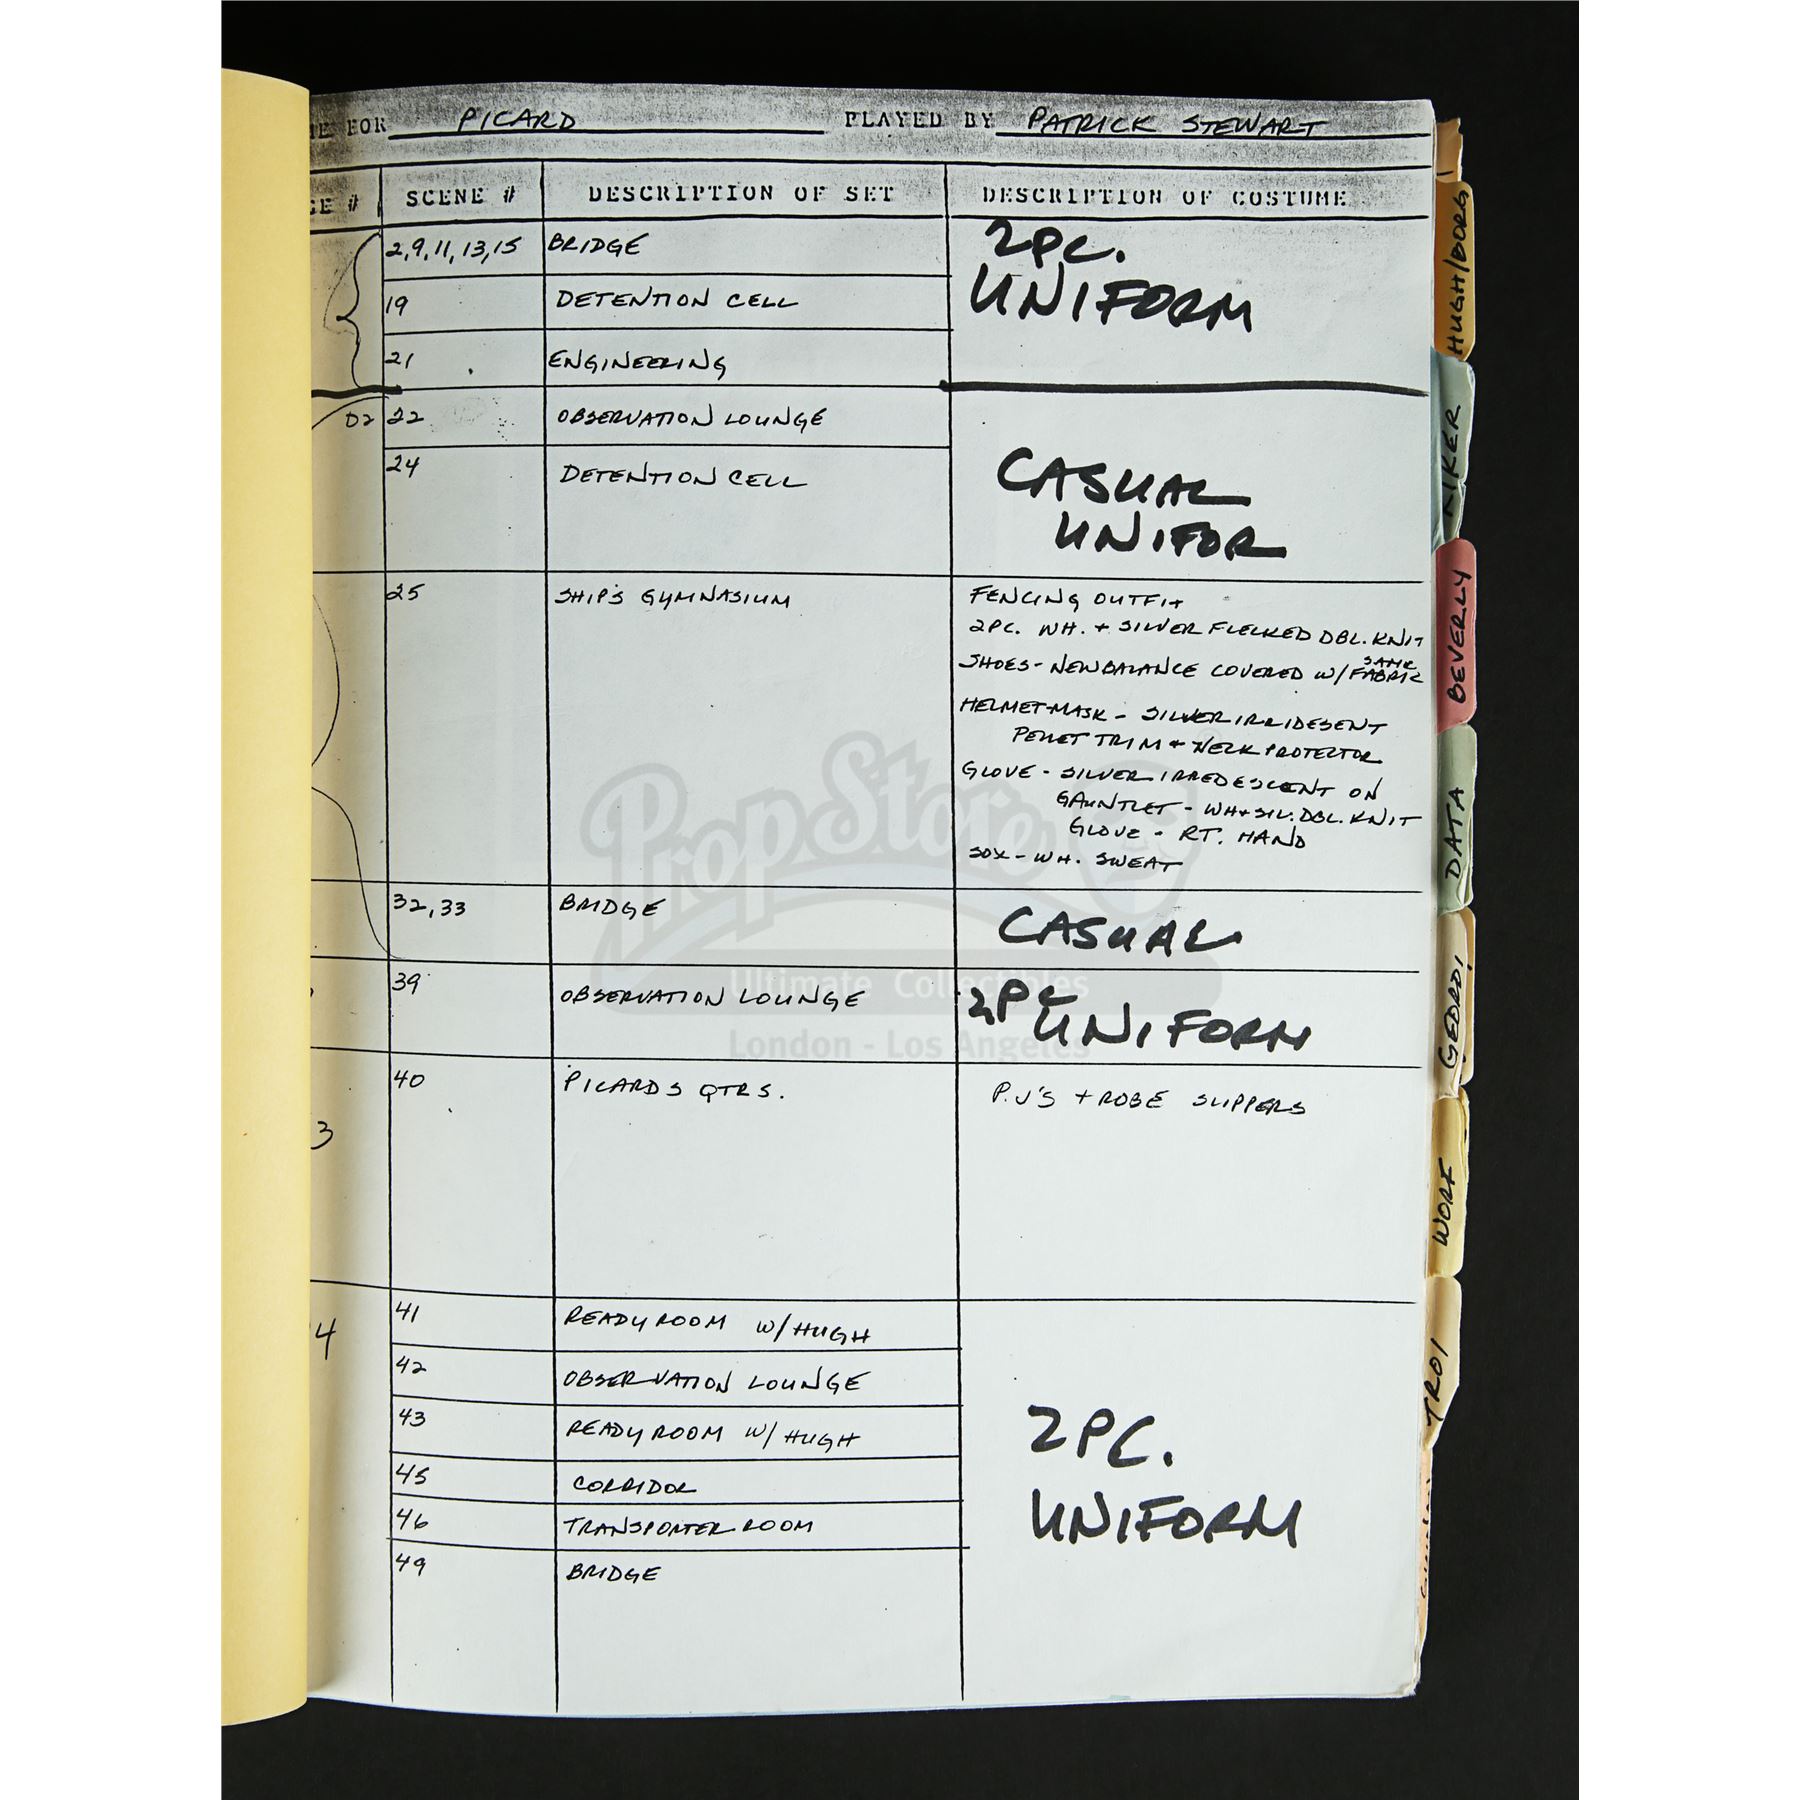 FOR PICARD PLAYED BY PATRICK STEWART
GE # SCENE # DESCRIPTION OF SET DESCRIPTION OF COSTUME
2,9,11,13,15 BRIDGE
2PC.
UNIFORM
19 DETENTION CELL
21 ENGINEERING
D2 22 OBSERVATION LOUNGE
24 DETENTION CELL
CASUAL
UNIFOR
25 SHIP'S GYMNASIUM
FENCING OUTFIT
2PC. WH. + SILVER FLECKED DBL. KNIT
SHOES - NEWBALANCE COVERED W/ SAME FABRIC
HELMET-MASK - SILVER IRRIDESENT
TRIM + NECK PROTECTOR
GLOVE - SILVER IRREDESCENT ON
GAUNTLET - WH+SIL. DBL. KNIT
GLOVE - RT. HAND
SOX - WH. SWEAT
32,33 BRIDGE
CASUAL
39 OBSERVATION LOUNGE
2PC
UNIFORM
3
40 PICARDS QTRS.
P.J'S + ROBE SLIPPERS
4
41 READY ROOM W/ HUGH
42 OBSERVATION LOUNGE
43 READY ROOM W/ HUGH
45 CORRIDOR
46 TRANSPORTER ROOM
49 BRIDGE
2PC.
UNIFORM
HUGH/BORG
RIKER
BEVERLY
DATA
GEORDI
WORF
TROI
PropStore
Ultimate Collectibles
London - Los Angeles